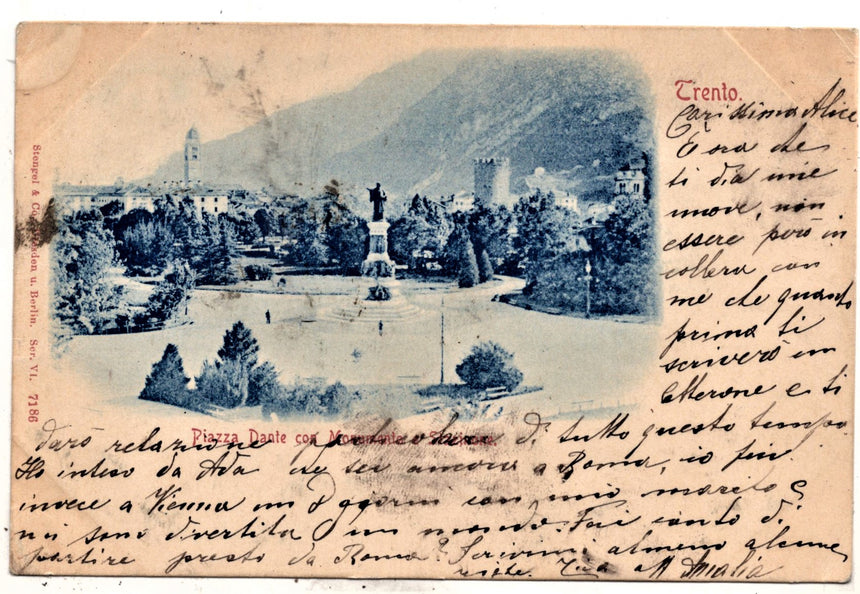 Trento.
Carissima Alice
È ora che
ti dia mie
nuove, non
essere però in
collera con
me che quanto
prima ti
scriverò un
letterone e ti
darò relazione di tutto questo tempo.
Ho inteso da Ada che sei ancora a Roma, io fui
invece a Vienna un 8 giorni con mio marito e
mi sono divertita un mondo. Fai conto di
partire presto da Roma? Scrivimi almeno alcune
righe. Tua Amalia
Piazza Dante con Monumento
Stengel & Co., Dresden u. Berlin. Ser. VI. 7186